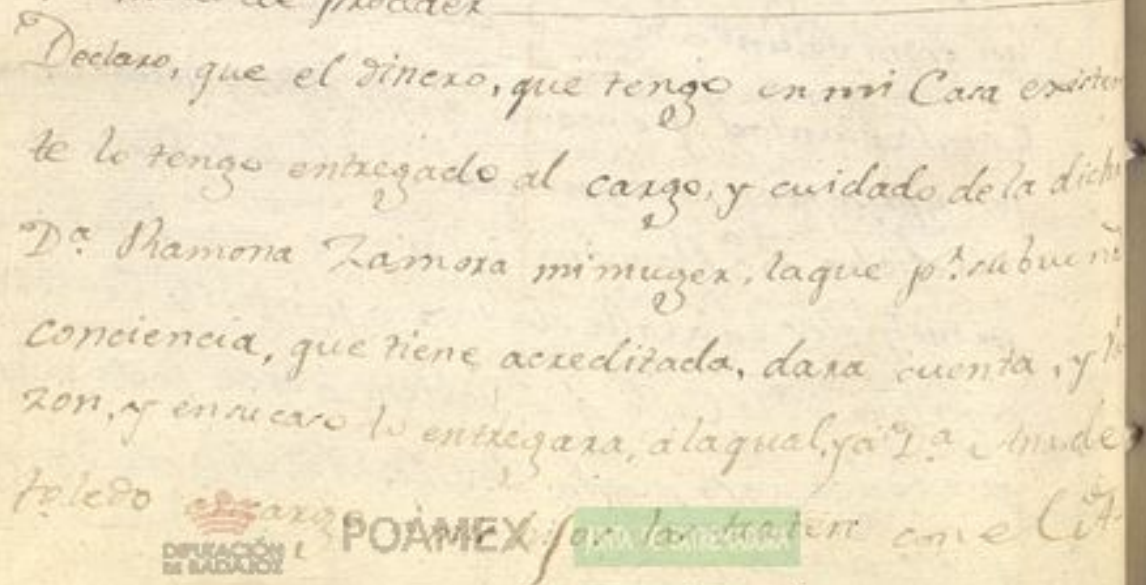 de proceder
Declaro, que el dinero, que tengo en mi Casa existen
te lo tengo entregado al cargo, y cuidado de la dicha
Dª Ramona Zamora mi muger, la que pr. su buena
conciencia, que tiene acreditada, dara cuenta, y ra
zon, y en su caso lo entregara, a la qual, y a Dª Ana de
toledo
DIPUTACIÓN
DE BADAJOZ
POAMEX
JUNTA DE EXTREMADURA